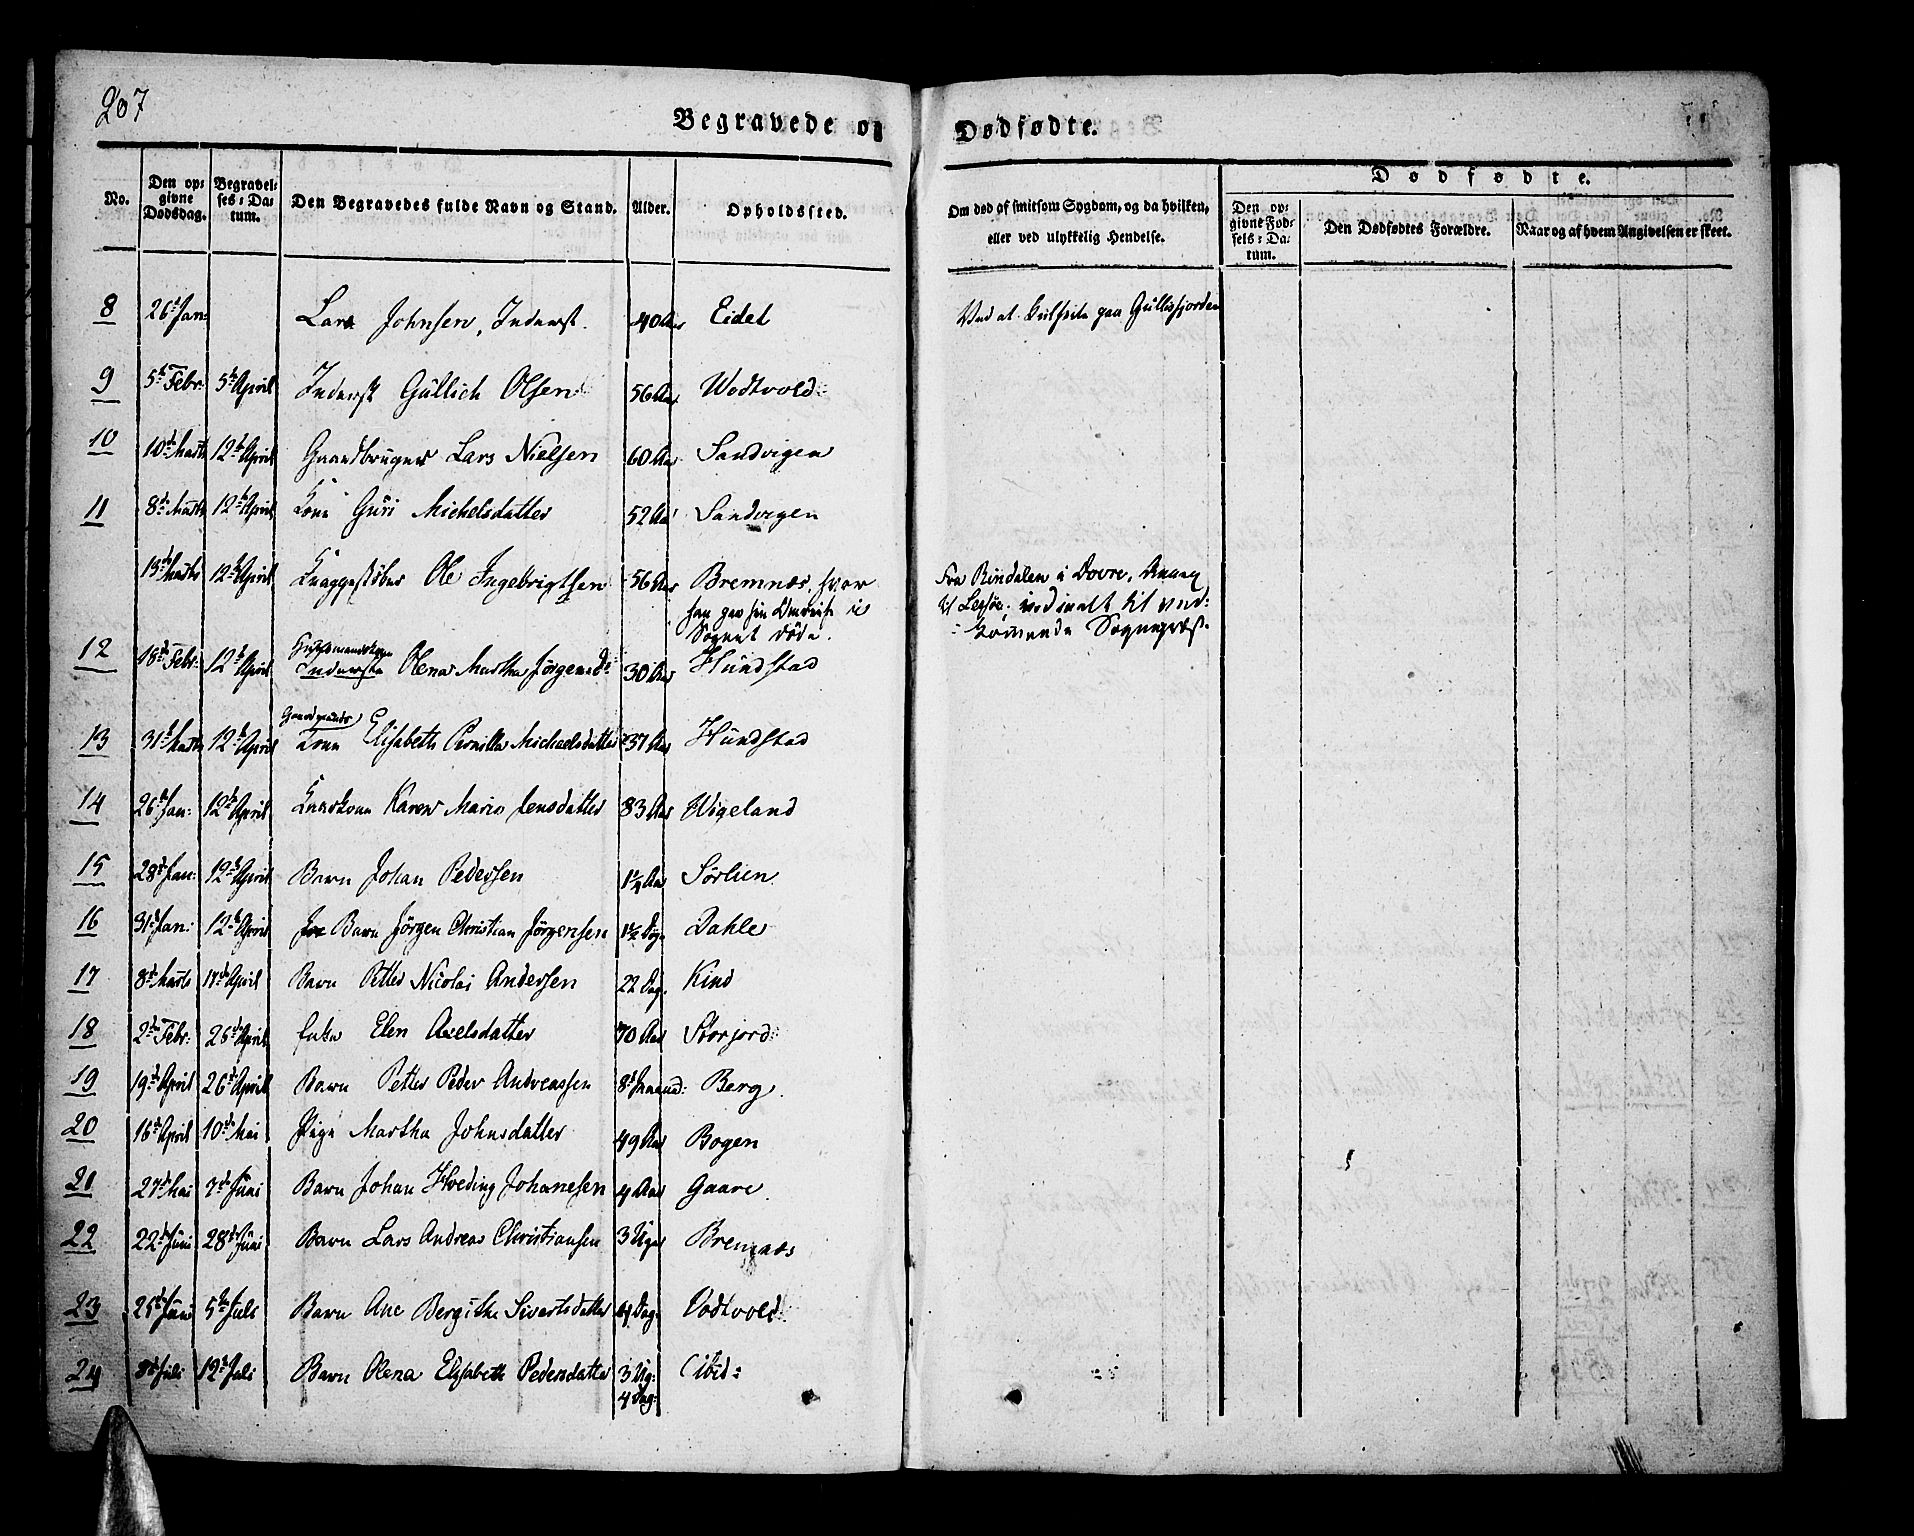 207
Begravede og
Dødfødte.
No.
Den op:
givne
Dødsdag.
Begravel:
ses: Da:
tum.
Den Begravedes fulde Navn og Stand.
Alder.
Opholdssted.
Om død af smitsom Sygdom, og da hvilken,
eller ved ulykkelig Hendelse.
Dødfødte.
Den op:
givne Fød:
sels: Da:
tum.
Den Dødfødtes Forældre.
Naar og af hvem Angivelsen er skeet.
8 26d Jan: Lars Johnsen, Inderst. 40 Aar Eidet Ved at kulseile paa Gullisfjorden
9 5te Febr: 5te April Inderst Gullich Olsen 56 Aar Wodtvold
10 10de Marts 12te April Gaardbruger Lars Nielsen 60 Aar Sandvigen
11 8de Marts 12te April Kone Guri Michelsdatter 52 Aar Sandvigen
13de Marts 12te April Ole Ingebrigtsen 56 Aar Bremnæs, hvor
han paa sin i
Sognet døde.
Fra Rindalen i Dovre, Annex
til Lessøe. indmeldt til ved:
kommende Sognepræst.
12 18de Febr: 12te April Huusmandskone
Inderste Olena Martha Jørgensd: 30 Aar Hundstad
13 31te Marts 12te April Gaardmands
Kone Elisabeth Pernilla Michaelsdatter 37 Aar Hundstad
14 26de Jan: 12te April Karen Maria Jensdatter 83 Aar Wigeland
15 28de Jan: 12te April Barn Johan Pedersen 1¼ Aar Sørlien
16 31te Jan: 12te April Barn Jørgen Christian Jørgensen 1½ Døgn Dahle
17 8de Marts 17de April Barn Petter Nicolai Andersen 22 Dag. Kind
18 2den Febr: 26de April Enke Elen Axelsdatter 70 Aar Storjord
19 19de April 26de April Barn Petter Peder Andreassen 8te Maaned: Berg.
20 16de April 10de Mai Pige Martha Johnsdatter 49 Aar Bogen
21 27de Mai 7de Juni Barn Johan Hveding Johanesen 4 Aar Gaare.
22 22de Juni 28de Juni Barn Lars Andreas Christiansen 3 Uger Bremnæs
23 25de Juni 5te Juli Barn Ane Bergithe Sivertsdatter 4 Dage Vodtvold
24 8de Juli 12te Juli Barn Olena Elisabeth Pedersdatter 3 Ug: Ibid:
4 Dag: